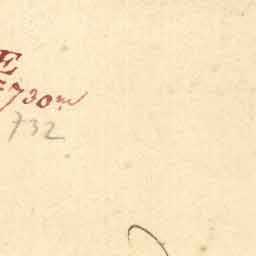 E
730m
732